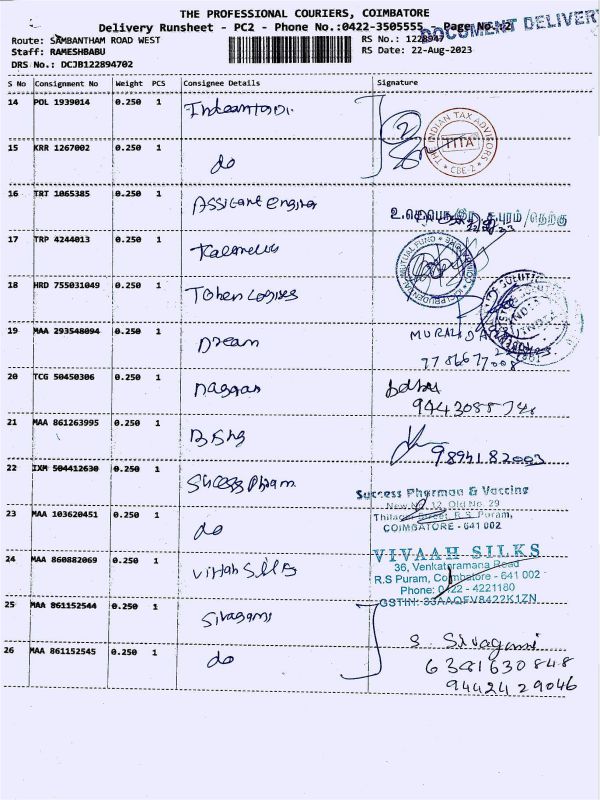 THE PROFESSIONAL COURIERS, COIMBATORE
Delivery Runsheet - PC2 - Phone No.:0422-3505555 - Page No.:2
DOCUMENT DELIVERY
Route: SAMBANTHAM ROAD WEST
RS No.: 1228947
Staff: RAMESHBABU
RS Date: 22-Aug-2023
DRS No.: DCJB122894702
S No Consignment No Weight PCS Consignee Details Signature
14 POL 1939014 0.250 1
2
THE INDIAN TAX ADVISORS
TITA
CBE-2
15 KRR 1267002 0.250 1 do
16 TRT 1065385 0.250 1 Assistant Engineer
17 TRP 4244013 0.250 1
PRUDENTIAL MUTUAL FUND
18 HRD 755031049 0.250 1 Token Logises
19 MAA 293548094 0.250 1 Dream
MURALIDA
7786677008
20 TCG 50450306 0.250 1 naggan
9443088748
21 MAA 861263995 0.250 1
9894182003
22 IXM 504412630 0.250 1 Success Pharm
Success Pharmaa & Vaccine
New No. 12, Old No. 29
Street, R.S. Puram,
COIMBATORE - 641 002
23 MAA 103620451 0.250 1 do
24 MAA 860882069 0.250 1 Vivah Silks
VIVAAH SILKS
36, Venkataramana Road
R.S Puram, Coimbatore - 641 002
Phone: 0422 - 4221180
GSTIN: 33AAQFV8422K1ZN
25 MAA 861152544 0.250 1 Sivagami
26 MAA 861152545 0.250 1 do
S. Sivagami
6381630848
9442429046